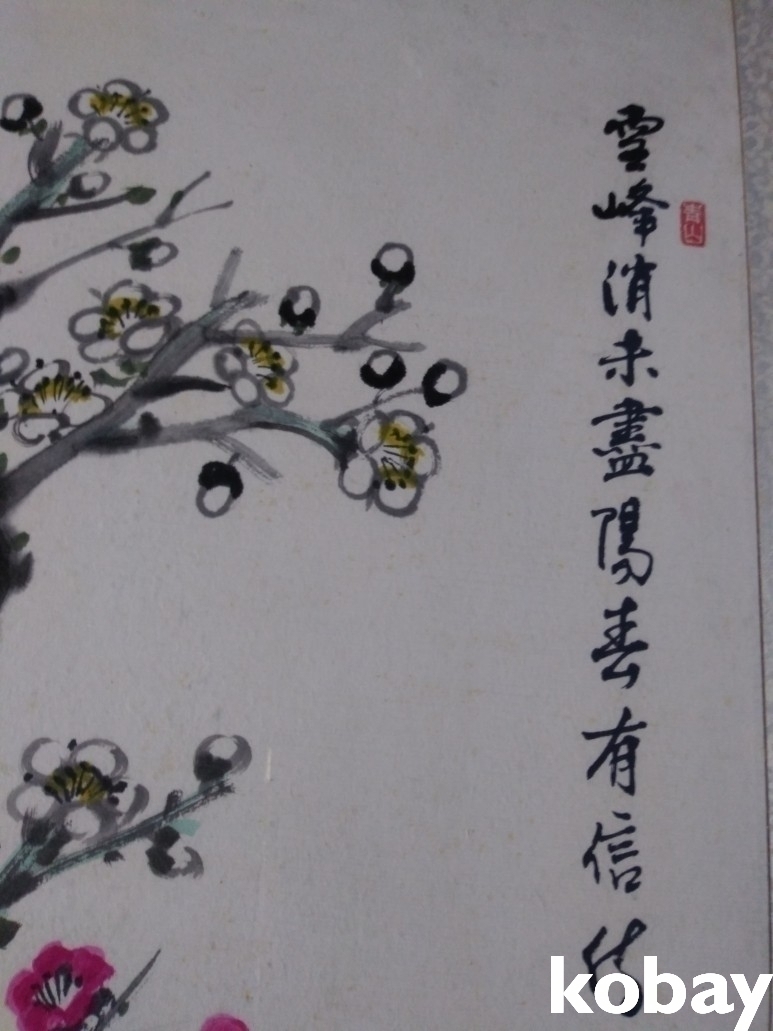 雪峰消未盡陽春有信傳
青山
kobay